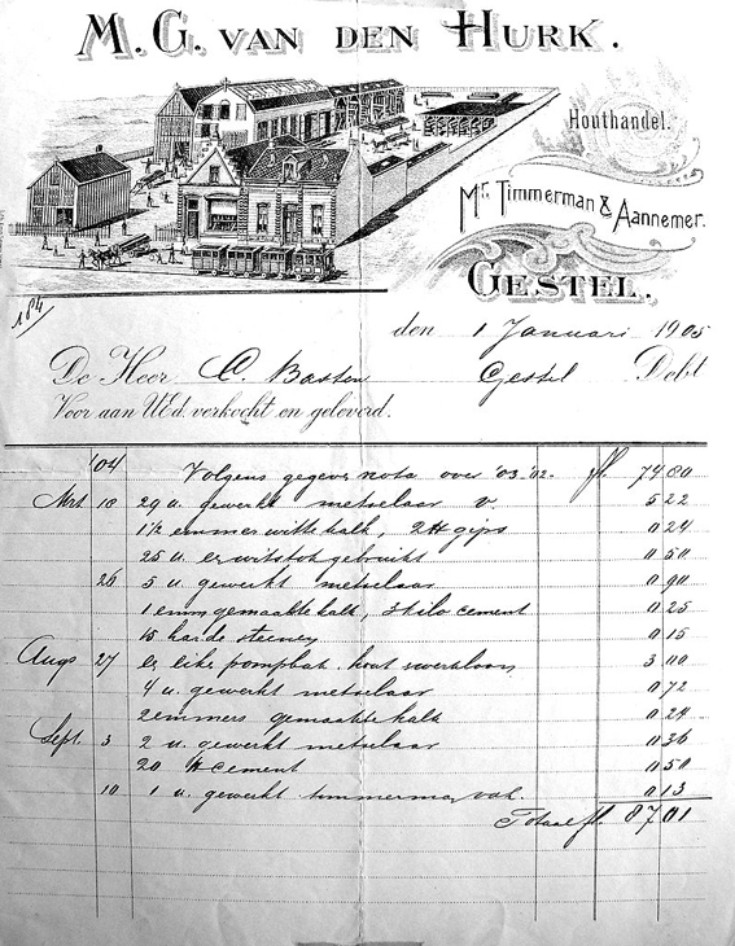 M. G. VAN DEN HURK.
Houthandel.
Mr. Timmerman & Aannemer.
GESTEL.
184
den 1 Januari 1905
De Heer C. Basten Gestel Debt
Voor aan UEd. verkocht en geleverd.
'04 Volgens gegeven nota over '03 '02. fl. 74 80
Mrt 18 29 u. gewerkt metselaar v. 5 22
1 1/2 emmer witte kalk, 2 ℔ gips 0 24
25 u. gebruikt 0 50
26 5 u. gewerkt metselaar 0 90
1 emm gemaakte kalk, 3 kilo cement 0 25
15 harde steenen 0 15
Augs 27 eike pompbak. hout 3 00
4 u. gewerkt metselaar 0 72
2 emmers gemaakte kalk 0 24
Sept. 3 2 u. gewerkt metselaar 0 36
20 ℔ cement 0 50
10 1 u. gewerkt timmerman 0 13
Totaal fl. 87 01